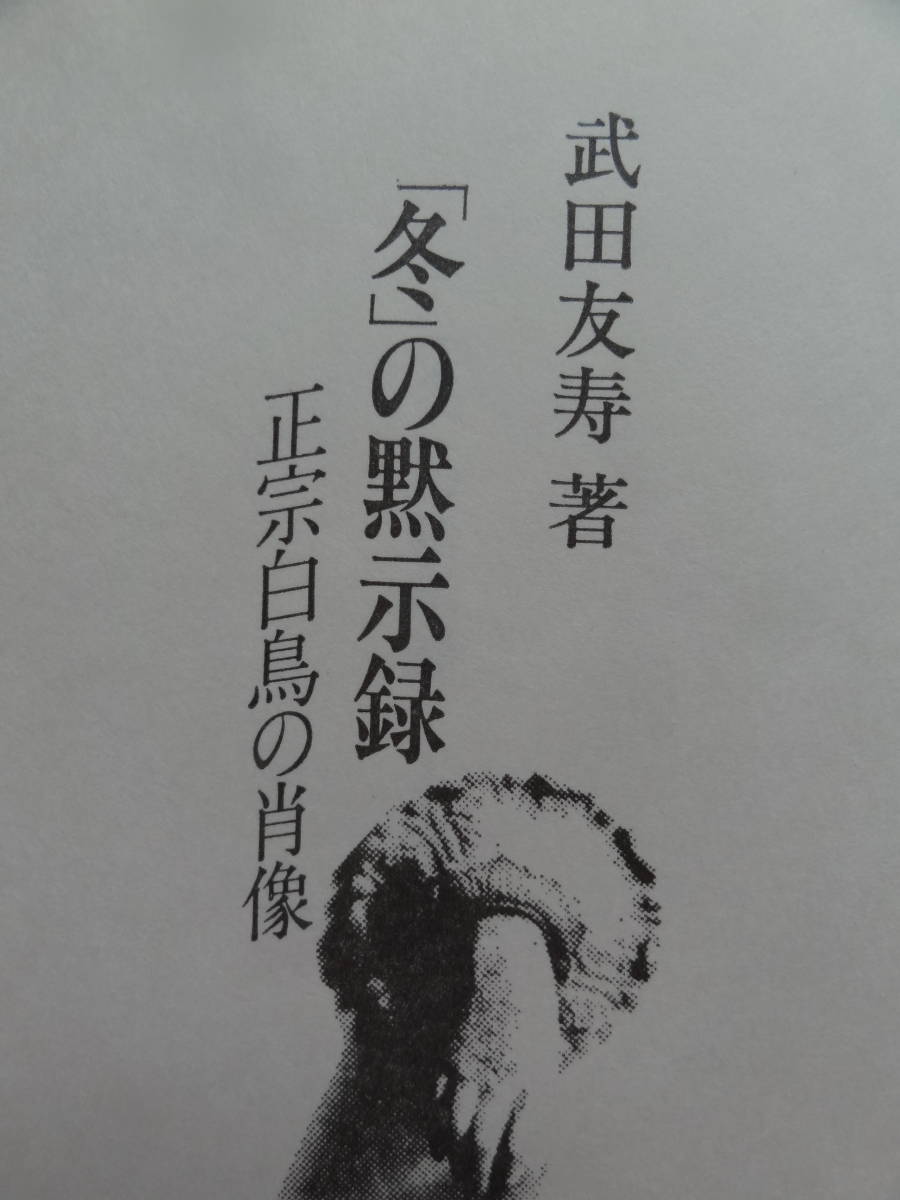 武田友寿 著
「冬」の黙示録
正宗白鳥の肖像